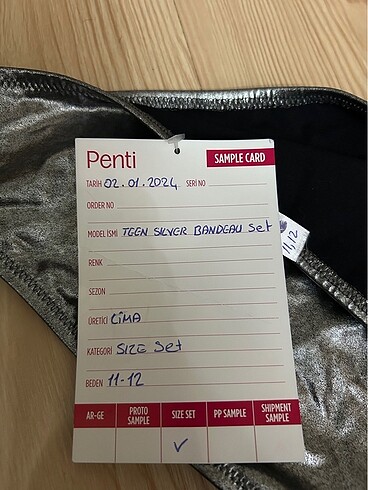 Penti SAMPLE CARD
TARİH 02.01.2024 SERİ NO
ORDER NO
MODEL İSMİ TEEN SILVER BANDEAU Set
RENK
SEZON
ÜRETİCİ CİMA
KATEGORİ SIZE Set
BEDEN 11-12
AR-GE PROTO SAMPLE SIZE SET PP SAMPLE SHIPMENT SAMPLE
✓
11,12